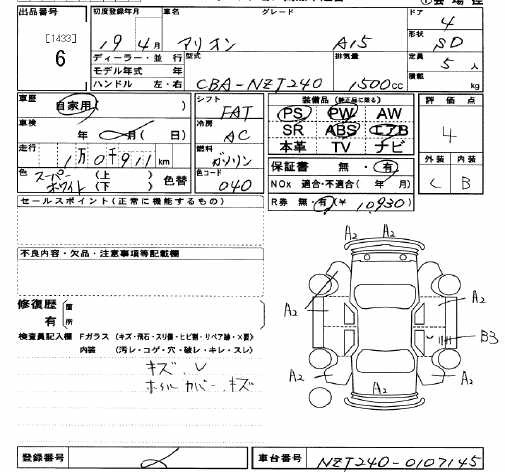 出品番号 初度登録年月 車名 グレード ドア 4
[1433] 19年4月 アリオン A15 形状 SD
6 ディーラー・並行 型式 排気量 定員 5人
モデル年式 年 積載 kg
ハンドル 左・右 CBA-NZT240 1500cc
車歴 自家用( ) シフト FAT 装備品(純正品に限る) 評価点
車検 年 月(日) 冷房 AC PS PW AW 4
SR ABS エアB
走行 1万0千911km 燃料 ガソリン 本革 TV ナビ 外装 内装
色 スーパーホワイト (上)(下) 色替 色コード 040 保証書 無・有 C B
NOx 適合・不適合(年 月)
セールスポイント(正常に機能するもの) R券 無・有(¥ 10,930)
不良内容・欠品・注意事項等記載欄
A2 A2
A2 A2
修復歴 箇
有 所
検査員記入欄 Fガラス(キズ・飛石・スリ傷・ヒビ割・リペア跡・×要)
B3
内装(汚レ・コゲ・穴・破レ・キレ・スレ)
キズ、
ホイルカバー、キズ
A2 A2 A2
登録番号 車台番号 NZT240-0107145